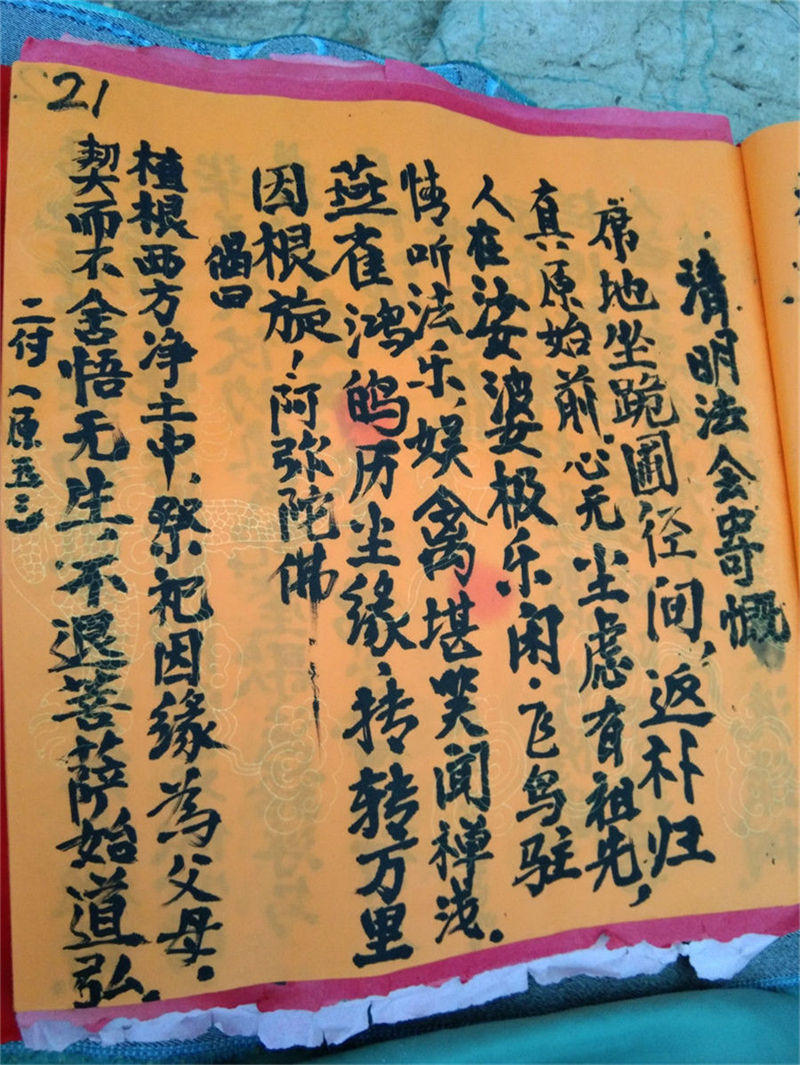 21
清明法会寄慨
席地坐跪圃径间,返朴归
真原始前.心无尘虑有祖先,
人在娑婆极乐闲.飞鸟驻
情听法乐,娱禽堪笑闻禅浅.
燕雀鸿鹄历尘缘,转转万里
因根旋!阿弥陀佛
偈曰
植根西方净土中,祭祀因缘为父母.
契而不舍悟无生,不退菩萨始道弘.
二付(原五三)